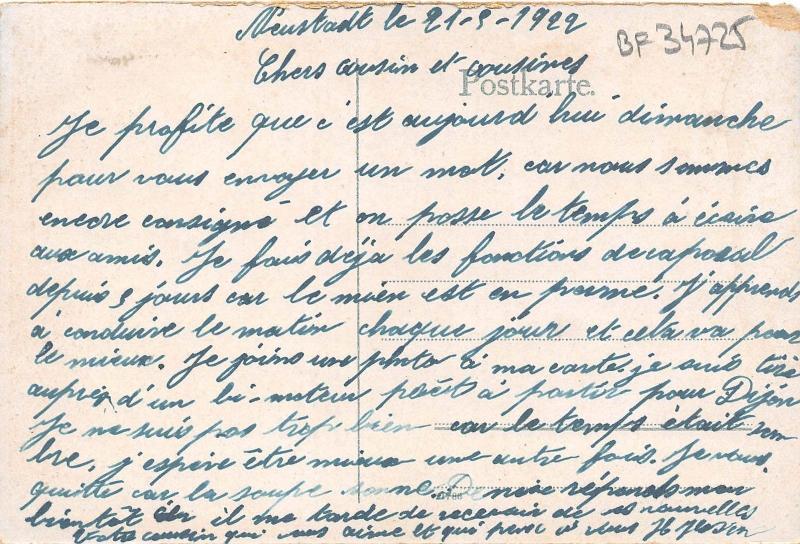 Neustadt le 21-5-1922
BF 34725
Chers cousin et cousines
Postkarte.
Je profite que c'est aujourd'hui dimanche
pour vous envoyer un mot, car nous sommes
encore consigné et on passe le temps à écrire
aux amis. Je fais déjà les fonctions de caporal
depuis 5 jours car le mien est en perme. J'apprends
à conduire le matin chaque jour et cela va pour
le mieux. Je joins un photo à ma carte. je suis tiré
auprès d'un bi-moteur prêt à partir pour Dijon
Je ne suis pas trop bien car le temps était som
bre, j'espère être mieux une autre fois. Je vous
quitte car la soupe sonne. réponds moi
bientôt il me tarde de recevoir de vos nouvelles
Votre cousin qui vous aime et qui pense à vous